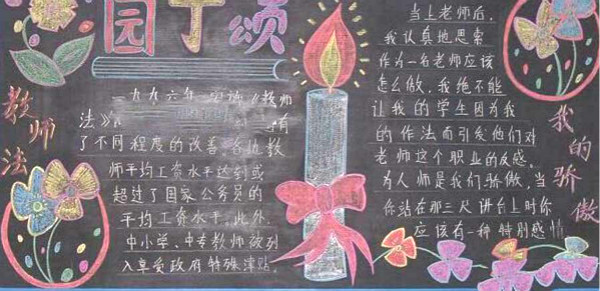 园丁颂
教师法
一九九六年
《教师
法》
有
了不同程度的改善,各地教
师平均工资水平达到或
超过了国家公务员的
平均工资水平,此外,
中小学、中专教师被列
入享受政府特殊津贴。
当上老师后,
我认真地思索
作为一名老师应该
怎么做,我绝不能
让我的学生因为我
的作法而引发他们对
老师这个职业的反感,
为人师是我们骄傲,当
你站在那三尺讲台上时你
应该有一种特别感情
我的骄傲